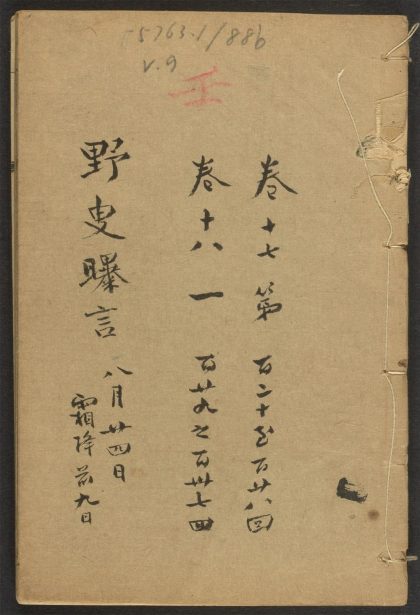 T5763.1/886
v.9
壬
卷十七 第 百二十至百廿八回
卷十八 一 百廿九之百卅七回
野叟曝言
八月廿四日
霜降前九日